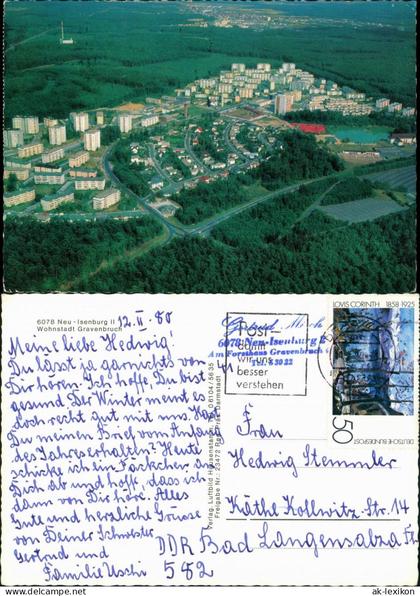 6078 Neu-Isenburg II
Wohnstadt Gravenbruch
12. II. 80
Meine liebe Hedwig!
Du läßt ja garnichts von
Dir hören. Ich hoffe, Du bist
gesund. Der Winter meint es
doch recht gut mit uns. Hast
Du meinen Brief vom Anfang
des Jahres erhalten? Heute
schicke ich ein Päckchen an
Dich ab und hoffe, dass ich
dann von Dir höre. Alles
Gute und herzliche Grüsse
von Deiner Schwester
Gertrud und
Familie Uschi
Verlag: Luftbild Hausenstamm, 06104/5635
Freigabe Nr.: 23472 Reg. Präs. Darmstadt
Gertrud
6078 Neu-Isenburg 2
Am Forsthaus Gravenbruch
Tel. 5 30 22
Post-
damit
wir uns
besser
verstehen
LOVIS CORINTH 1858-1925
50
DEUTSCHE BUNDESPOST
Frau
Hedwig Stemmler
Käthe Kollwitz-Str. 14
DDR Bad Langensalza
582
ak-lexikon
© www.ak-lexikon.de